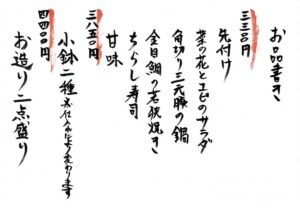 お品書き
三三〇〇円
先付け
菜の花と土山のサラダ
角切り三元豚の鍋
金目鯛の若狭焼き
ちらし寿司
甘味
三八五〇円
小鉢二種 ※仕入れにより変わります
四四〇〇円
お造り二点盛り